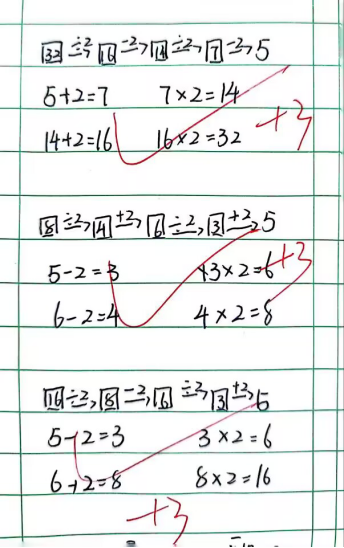 32 ÷2→ 16 -2→ 14 ÷2→ 7 -2→ 5
5+2=7 7×2=14
14+2=16 16×2=32
+3
8 ÷2→ 4 +2→ 6 ÷2→ 3 +2→ 5
5-2=3 3×2=6
+3
6-2=4 4×2=8
16 ÷2→ 8 -2→ 6 ÷2→ 3 +2→ 5
5-2=3 3×2=6
6+2=8 8×2=16
+3